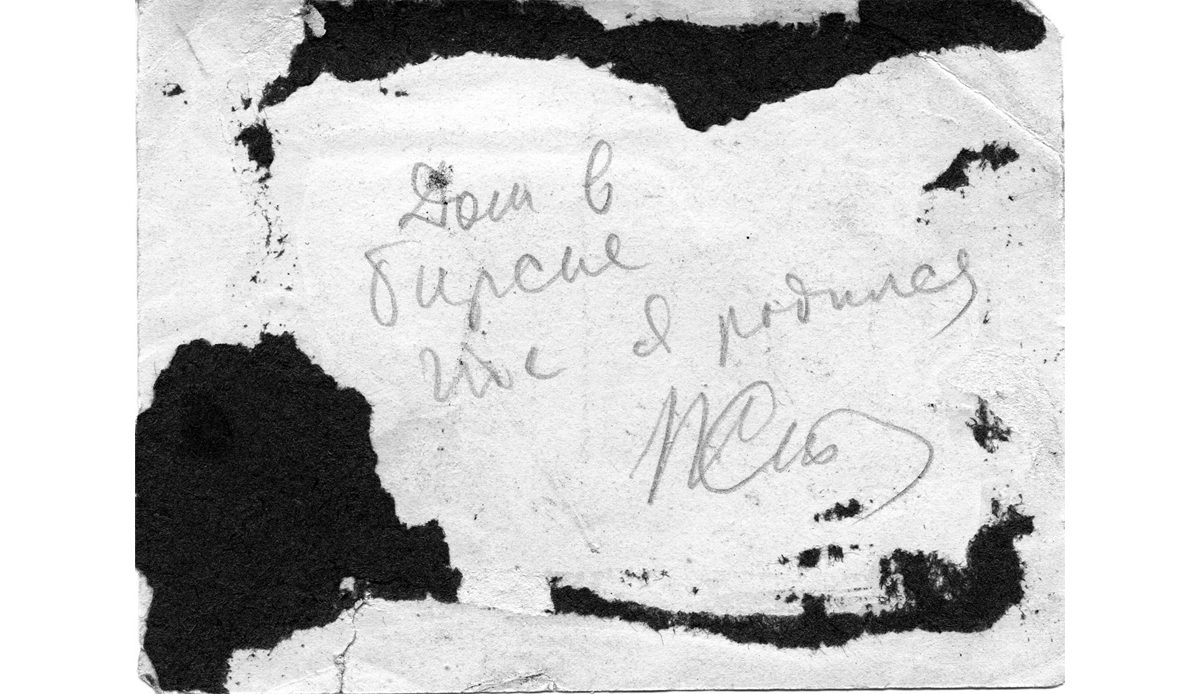 Дом в
Бирске
где я родился